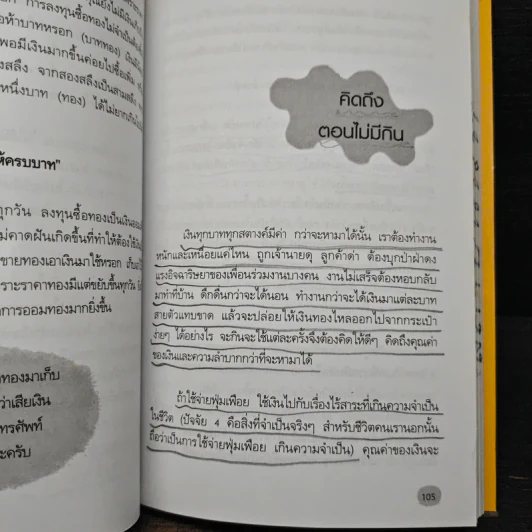 การลงทุนซื้อทองไม่จำเป็นต้
ห้าบาทหรอก (บาททอง)
พอมีเงินมากขึ้นค่อยไปซื้อเพิ่ม
งสลึง จากสองสลึงเป็นสามสลึง
หนึ่งบาท (ทอง) ได้ไม่ยากเกินไป
ห้ครบบาท"
ทุกวัน ลงทุนซื้อทองเป็นเงินออม
ม่คาดฝันเกิดขึ้นที่ทำให้ต้องใช้เงิน
ขายทองเอาเงินมาใช้หรอก เก็บ
ราะราคาทองมีแต่ขยับขึ้นทุกวัน
การออมทองมากยิ่งขึ้น
ทองมาเก็บ
ว่าเสียเงิน
ทรศัพท์
ะครับ
คิดถึง
ตอนไม่มีกิน
เงินทุกบาททุกสตางค์มีค่า กว่าจะหามาได้นั้น เราต้องทำงาน
หนักและเหนื่อยแค่ไหน ถูกเจ้านายดุ ลูกค้าด่า ต้องบุกป่าฝ่าดง
แรงอิจฉาริษยาของเพื่อนร่วมงานบางคน งานไม่เสร็จต้องหอบกลับ
มาทำที่บ้าน ดึกดื่นกว่าจะได้นอน ทำงานกว่าจะได้เงินมาแต่ละบาท
สายตัวแทบขาด แล้วจะปล่อยให้เงินทองไหลออกไปจากกระเป๋า
ง่ายๆ ได้อย่างไร จะกินจะใช้แต่ละครั้งจึงต้องคิดให้ดีๆ คิดถึงคุณค่า
ของเงินและความลำบากกว่าที่จะหามาได้
ถ้าใช้จ่ายฟุ่มเฟือย ใช้เงินไปกับเรื่องไร้สาระที่เกินความจำเป็น
ในชีวิต (ปัจจัย 4 คือสิ่งที่จำเป็นจริงๆ สำหรับชีวิตคนเรานอกนั้น
ถือว่าเป็นการใช้จ่ายฟุ่มเฟือย เกินความจำเป็น) คุณค่าของเงินจะ
105